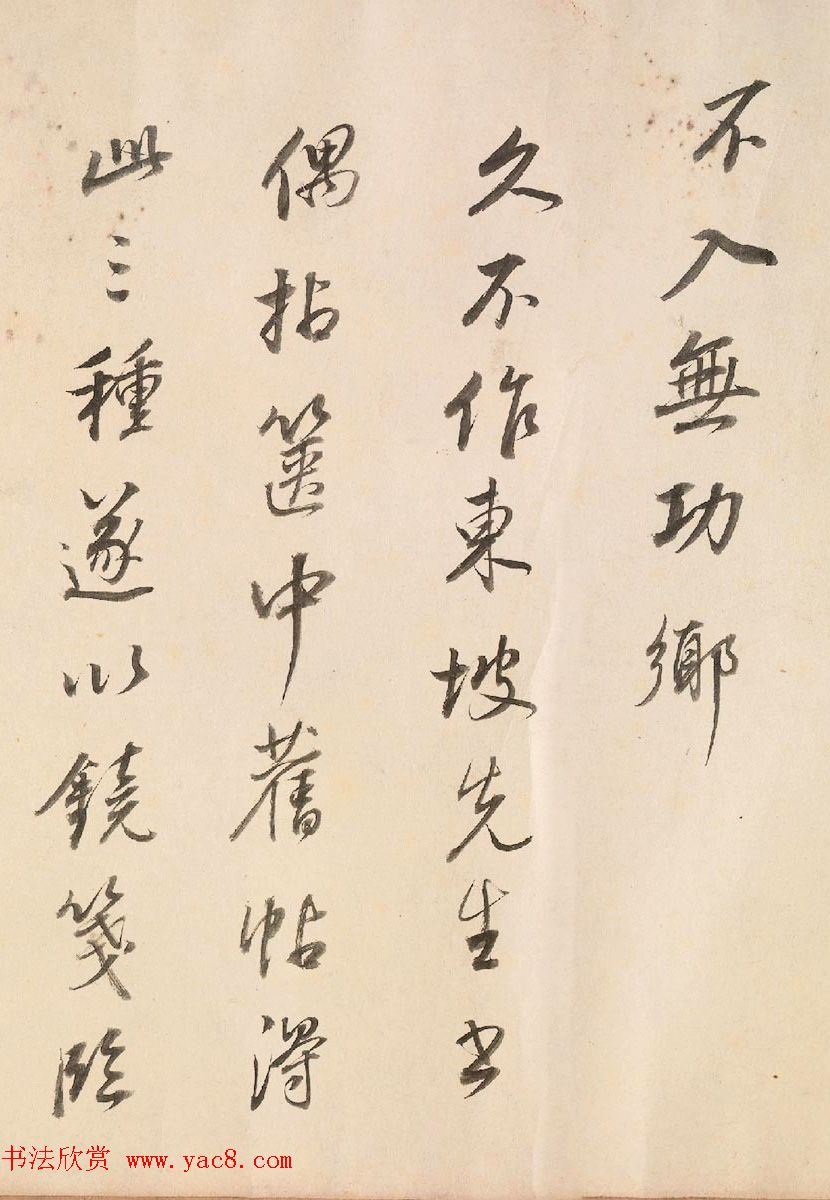 不入無功鄉
久不作東坡先生书
偶拈篋中舊帖得
此三種遂以鏡箋臨
书法欣赏 www.yac8.com